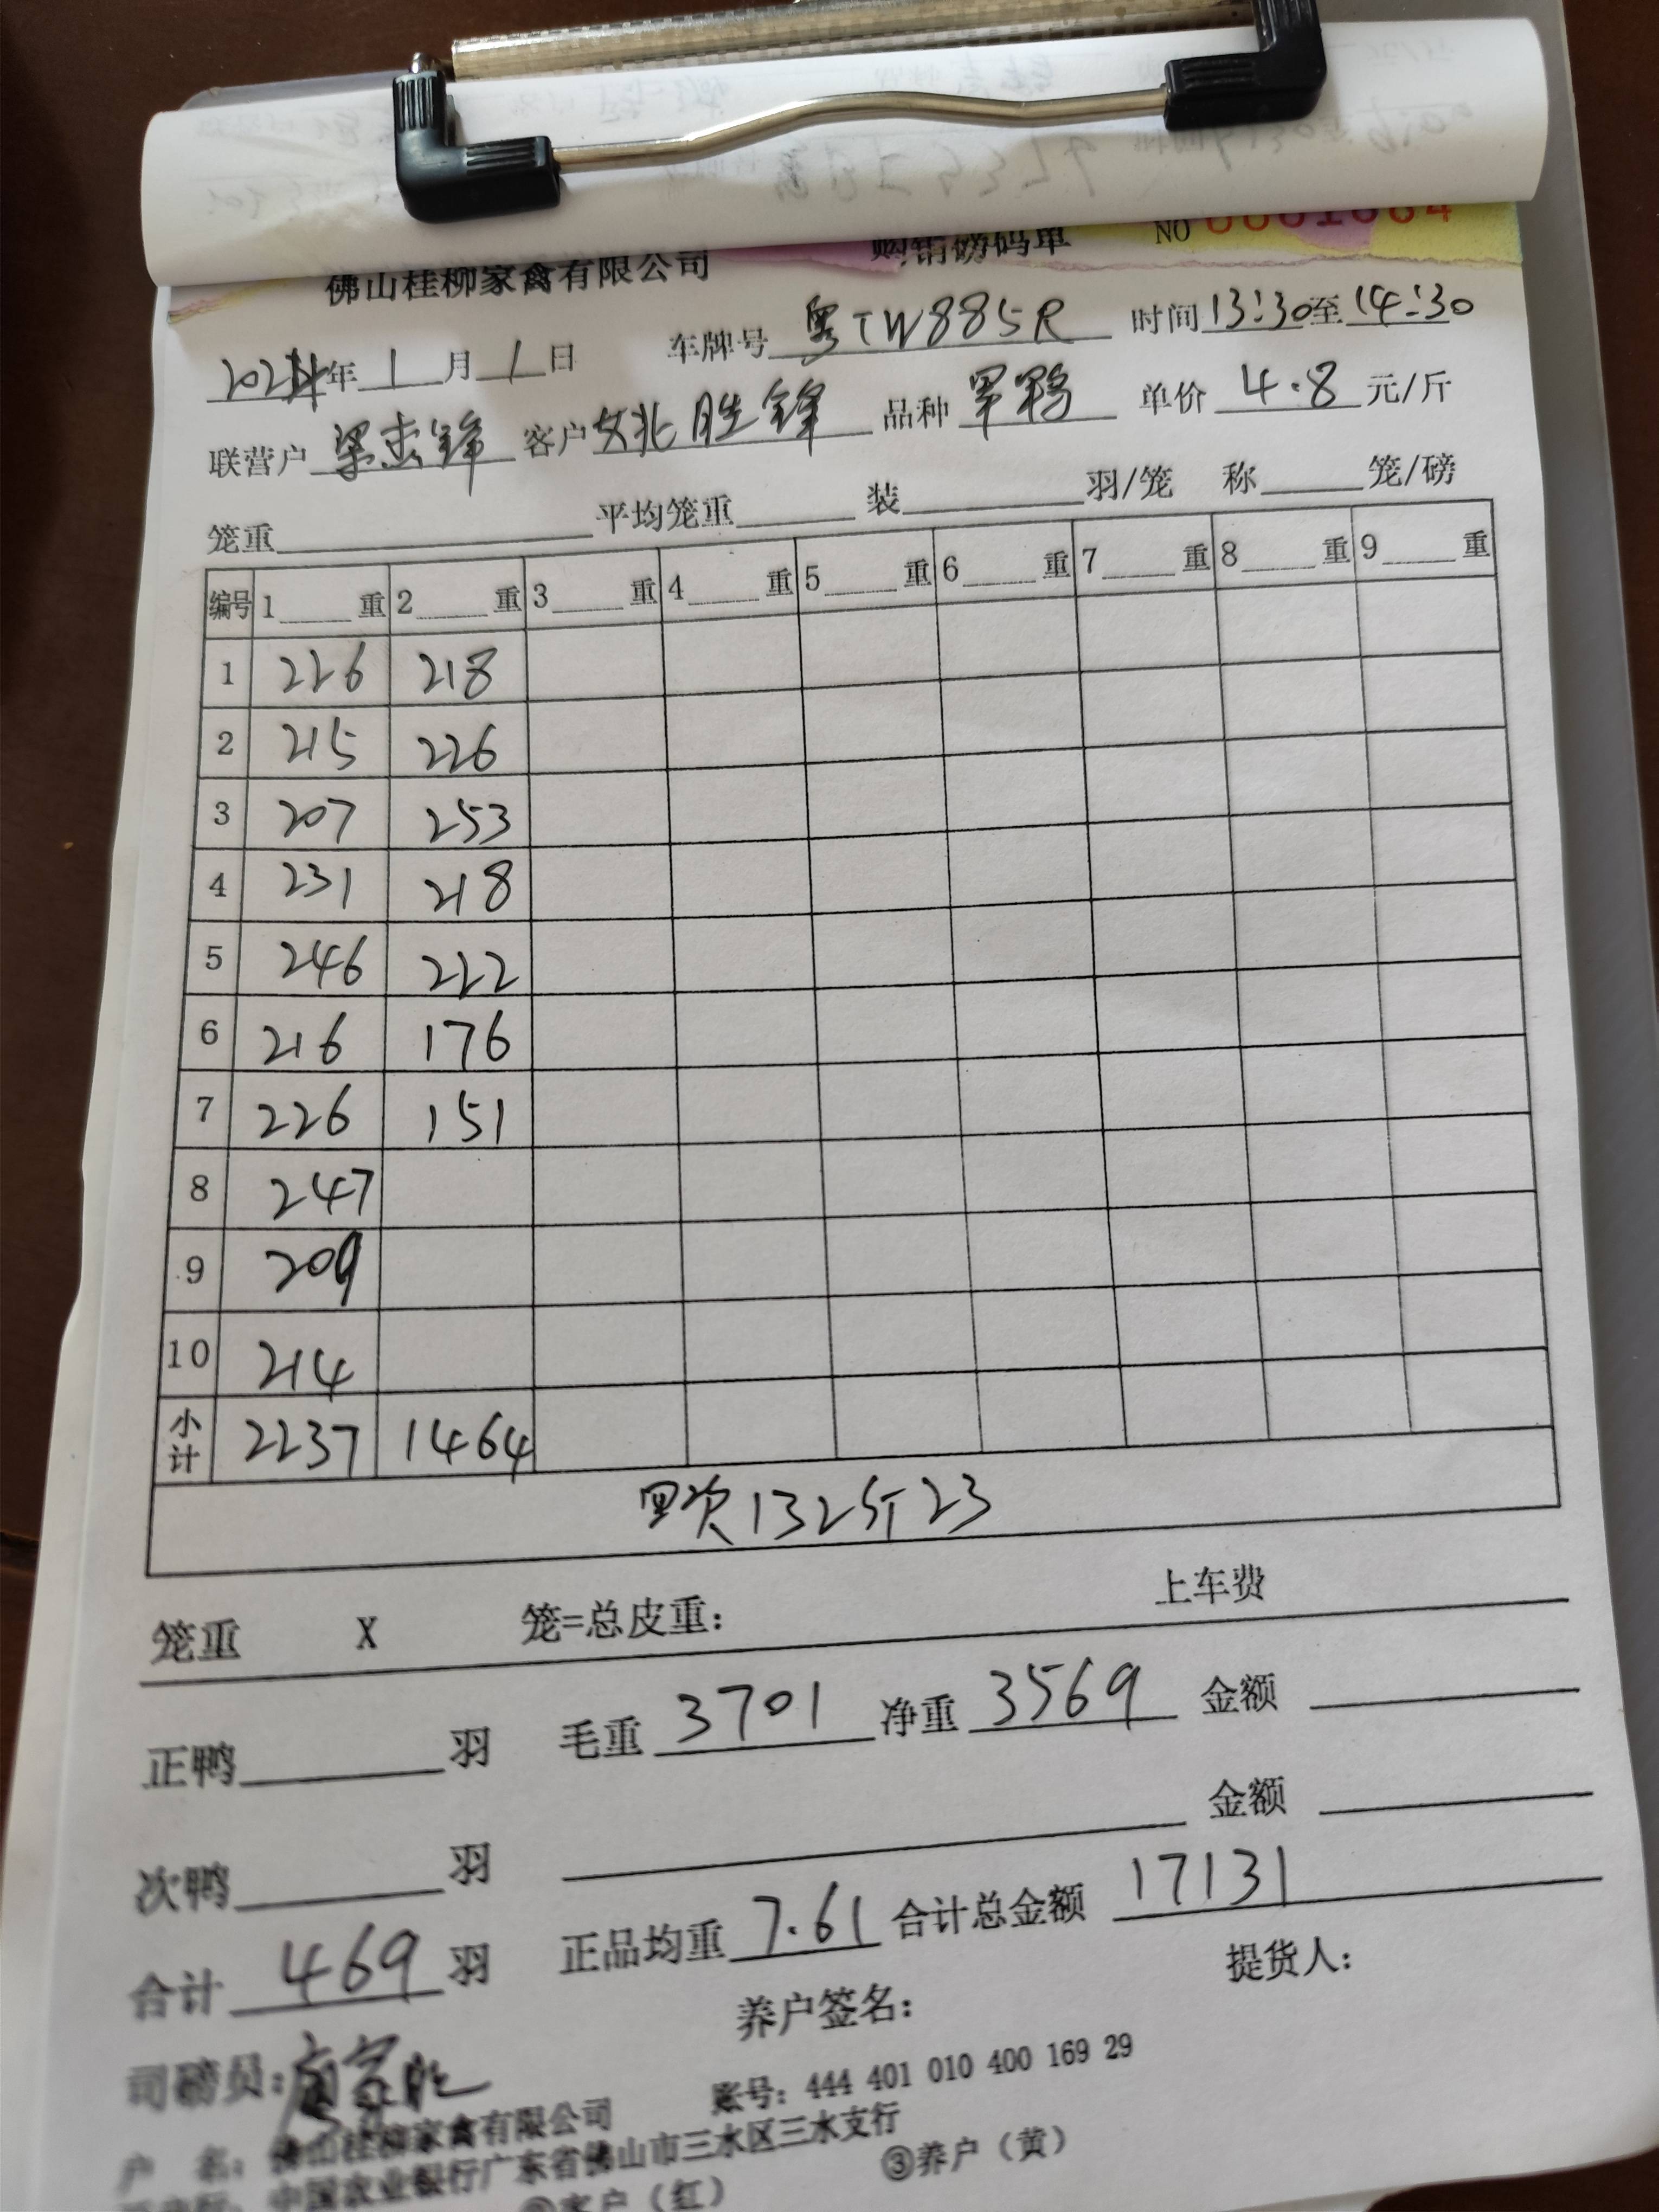 佛山桂柳家禽有限公司 购销磅码单 NO 0001664
年 1 月 1 日 车牌号 粤TW885R 时间 13:30 至 14:30
联营户 梁志锋 客户 姚胜锋 品种 单价 4.8 元/斤
笼重 平均笼重 装 羽/笼 称 笼/磅
编号 1 重 2 重 3 重 4 重 5 重 6 重 7 重 8 重 9 重
1 226 218
2 215 226
3 207 253
4 231 218
5 246 222
6 216 176
7 226 151
8 247
9 209
10 214
小计 2237 1464
次132斤23
笼重 X 笼=总皮重: 上车费
正鸭 羽 毛重 3701 净重 3569 金额
次鸭 羽 金额
合计 469 羽 正品均重 7.61 合计总金额 17131
司磅员: 养户签名: 提货人:
户 名: 佛山桂柳家禽有限公司 账号: 444 401 010 400 169 29
中国农业银行广东省佛山市三水区三水支行
客户（红） ③养户（黄）